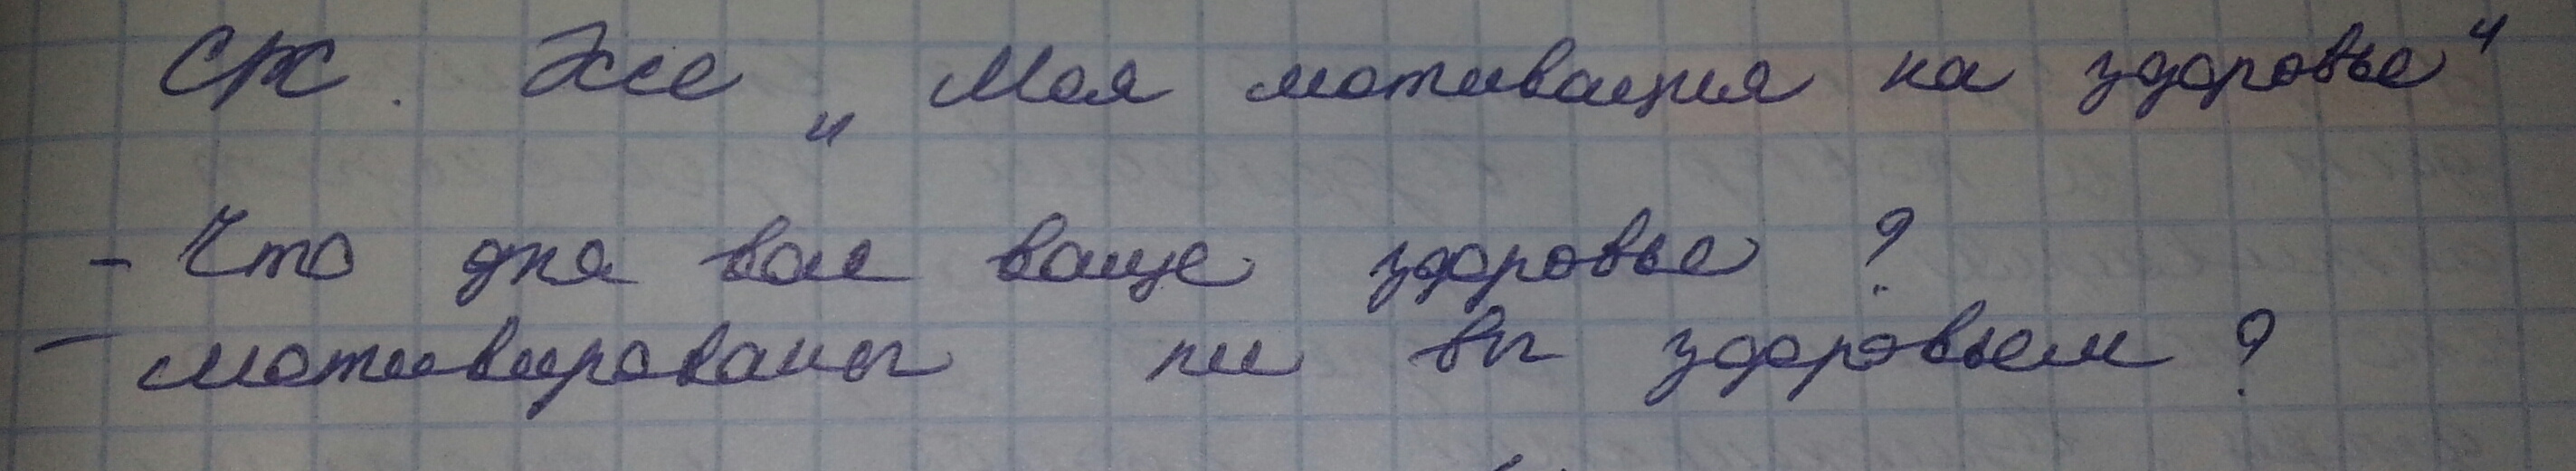 СРС. Эссе „Моя мотивация на здоровье“
- Что для вас ваше здоровье?
- мотивированы ли вы здоровьем?